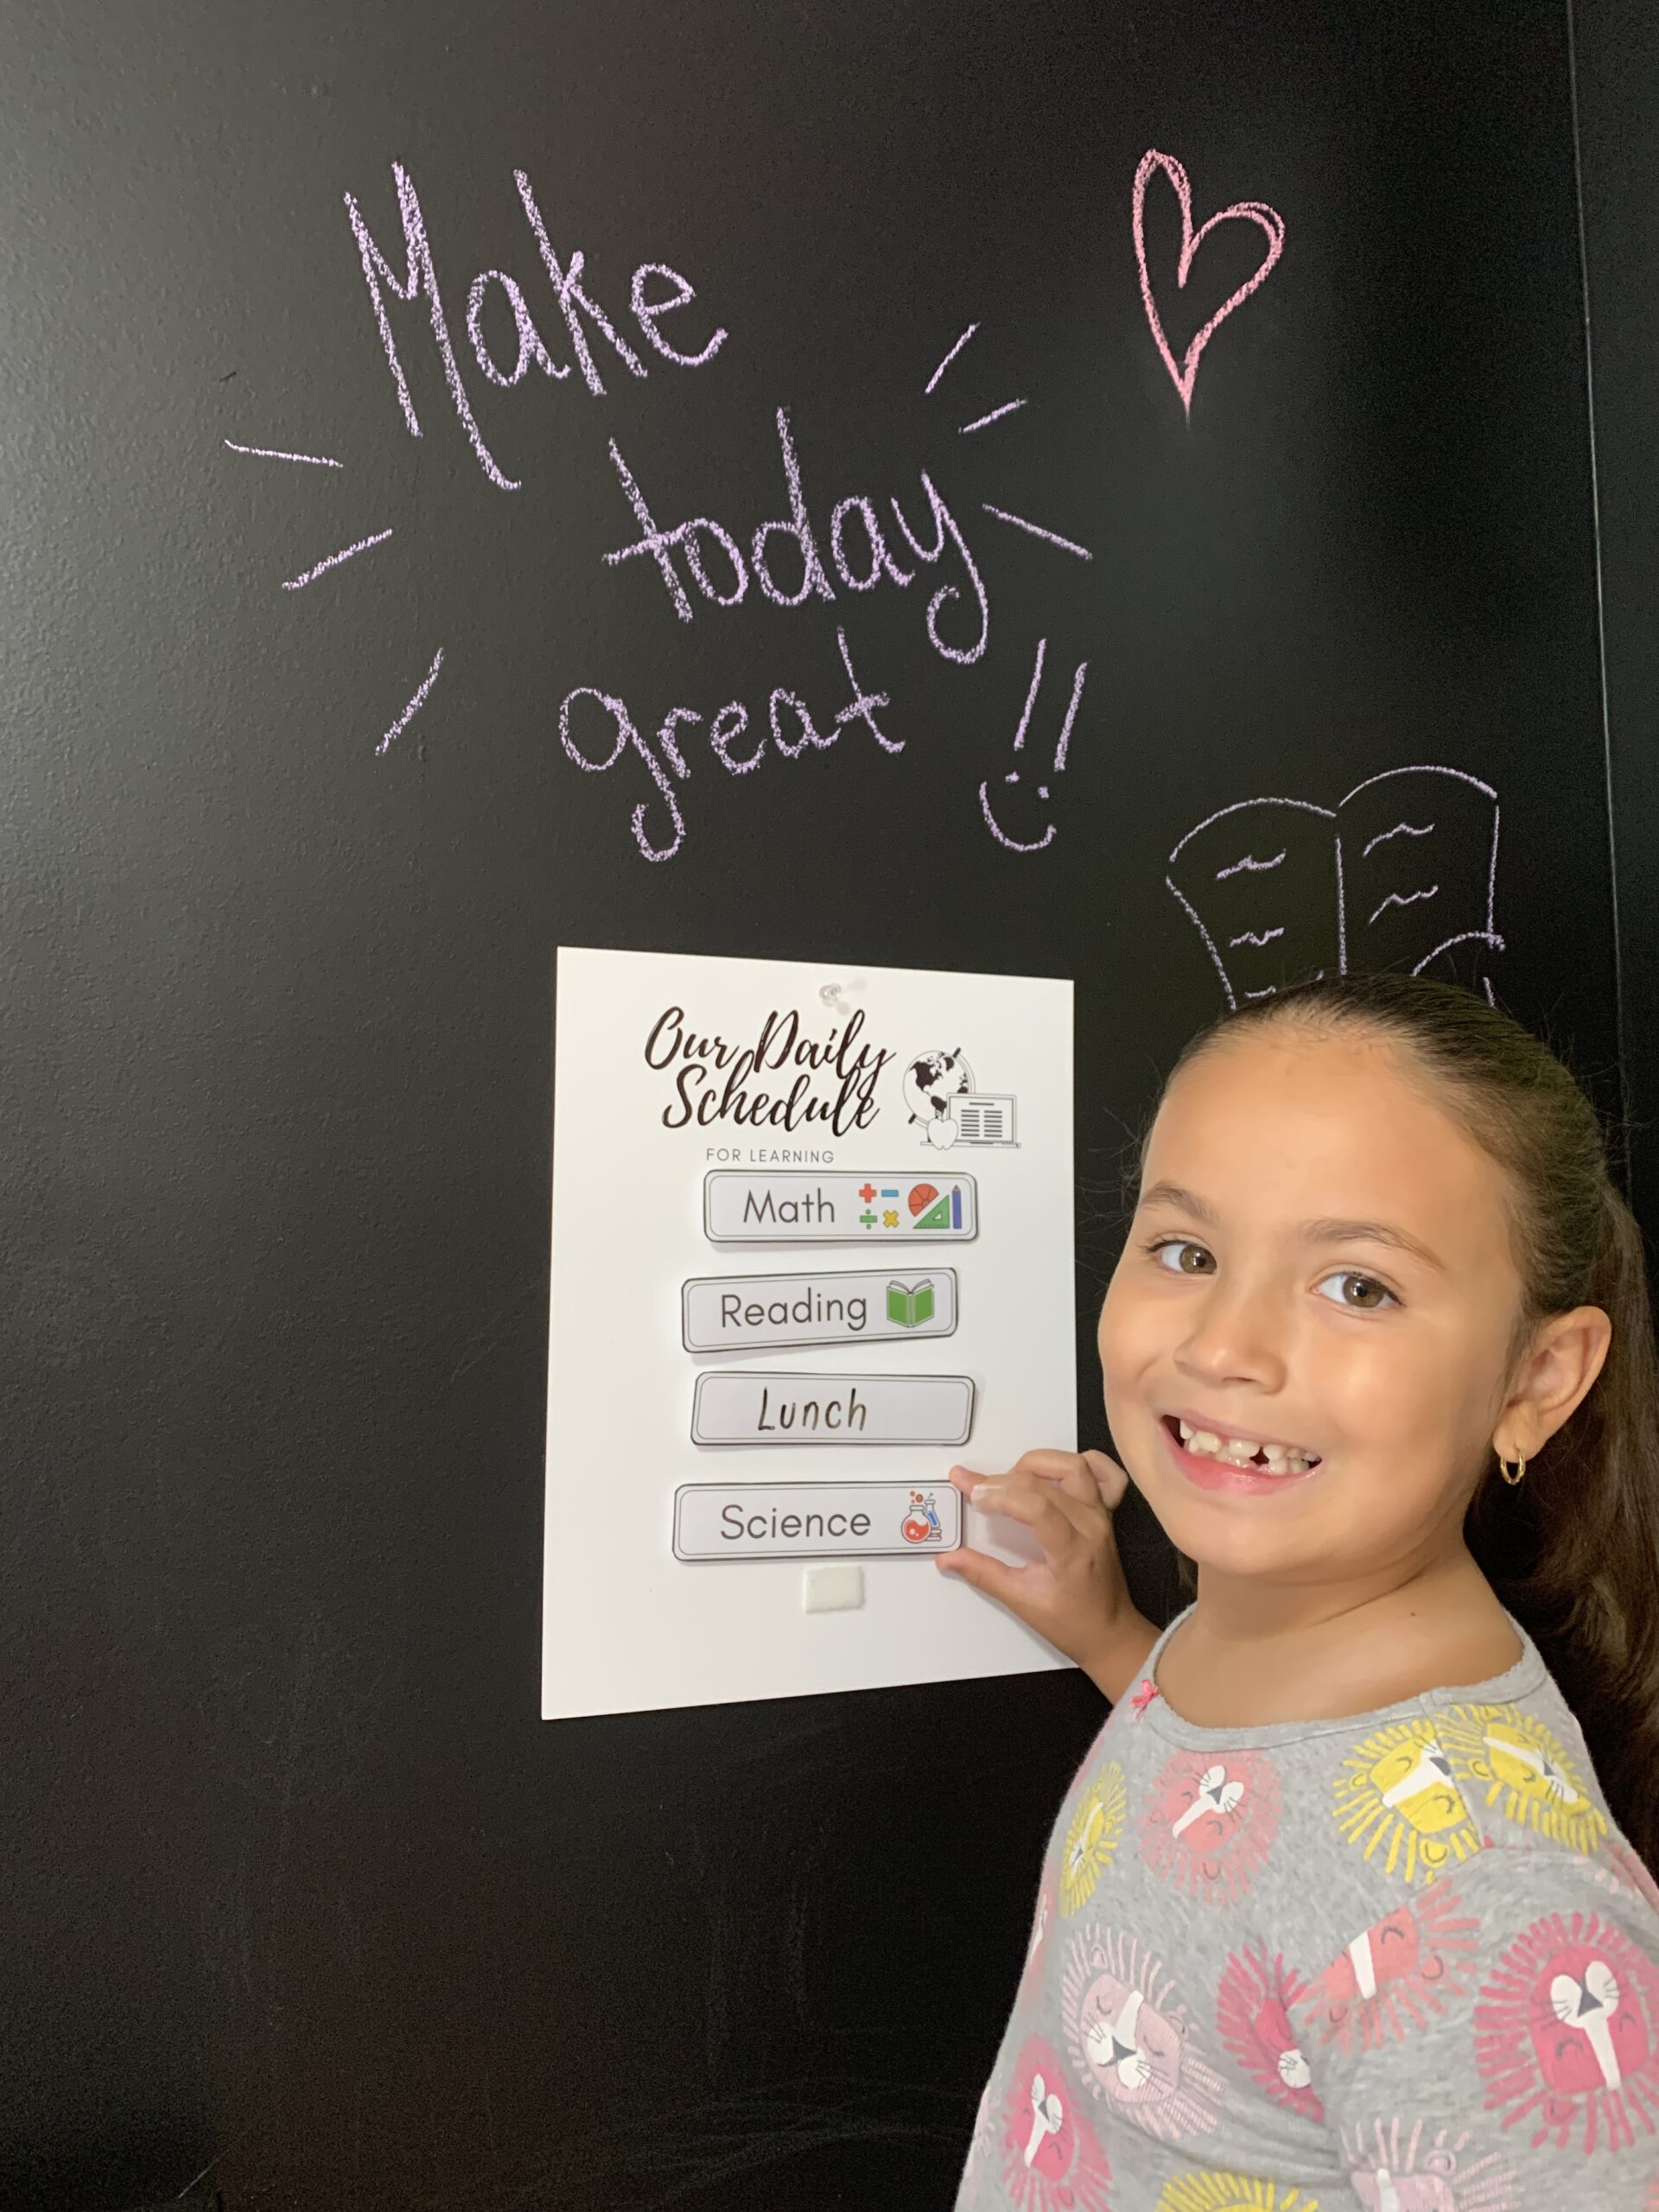 Make
today
great !!
Our Daily
Schedule
FOR LEARNING
Math
Reading
Lunch
Science